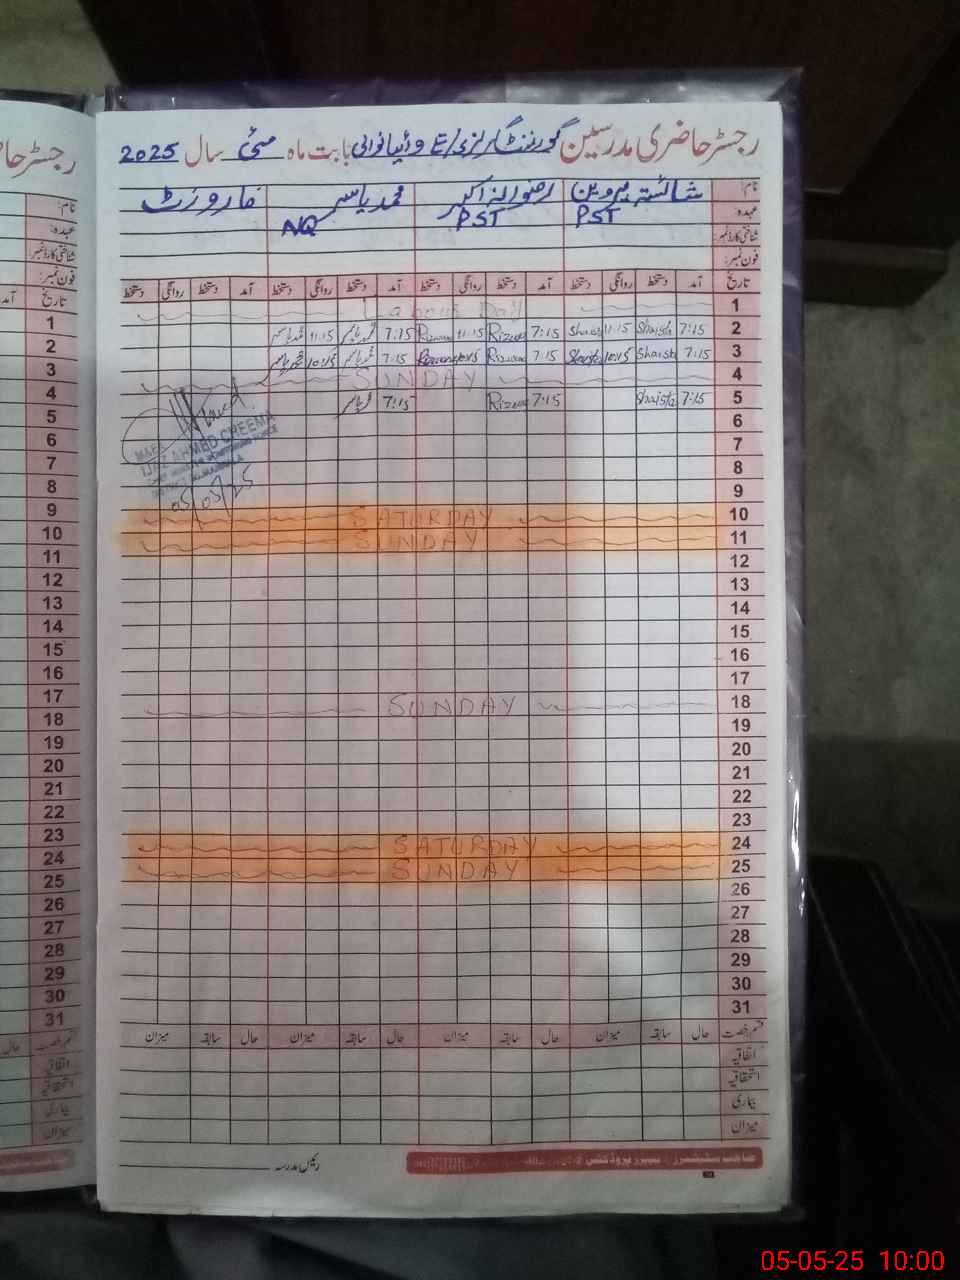 رجسٹر حاضری مدرسین گورنمنٹ گرلز بابت ماہ مئی سال 2025
نام: شائستہ پروین رضوانہ اکبر محمد یاسر
عہدہ: PST PST NQ
شناختی کارڈ نمبر:
فون نمبر:
تاریخ آمد دستخط روانگی دستخط آمد دستخط روانگی دستخط آمد دستخط روانگی دستخط آمد دستخط روانگی دستخط
1 Labour Day
2 7:15 Shaista 11:15 Shaista 7:15 Rizwana 11:15 Rizwana 7:15 محمد یاسر 11:15 محمد یاسر
3 7:15 Shaista 10:15 Shaista 7:15 Rizwana 10:15 Rizwana 7:15 محمد یاسر 10:15 محمد یاسر
4 SUNDAY
5 7:15 Shaista 7:15 Rizwana 7:15 محمد یاسر
6
7
8
9
10 SATURDAY
11 SUNDAY
12
13
14
15
16
17
18 SUNDAY
19
20
21
22
23
24 SATURDAY
25 SUNDAY
26
27
28
29
30
31
قسم رخصت حال سابقہ میزان حال سابقہ میزان حال سابقہ میزان حال سابقہ میزان
اتفاقیہ
استحقاقیہ
بیماری
میزان
رئیس مدرسہ
AHMED CHEEMA
05/05/25
رجسٹر حا
نام:
عہدہ:
شناختی کارڈ نمبر:
فون نمبر:
تاریخ آمد
1
2
3
4
5
6
7
8
9
10
11
12
13
14
15
16
17
18
19
20
21
22
23
24
25
26
27
28
29
30
31
قسم رخصت حال
اتفاقیہ
استحقاقیہ
بیماری
میزان
05-05-25 10:00